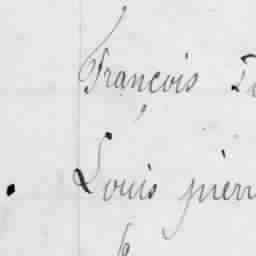 François
Louis pierr